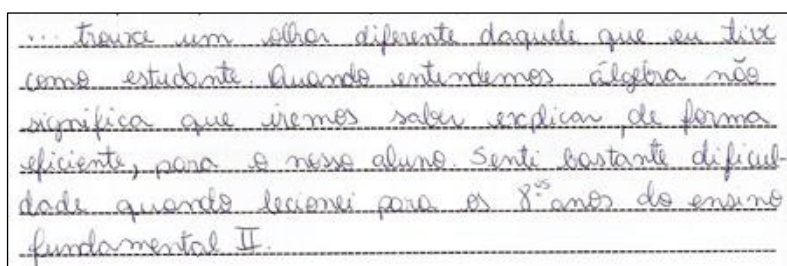 ... trouxe um olhar diferente daquele que eu tive
como estudante. Quando entendemos álgebra não
significa que iremos saber explicar, de forma
eficiente, para o nosso aluno. Senti bastante dificul-
dade quando lecionei para os 8ºs anos do ensino
fundamental II.